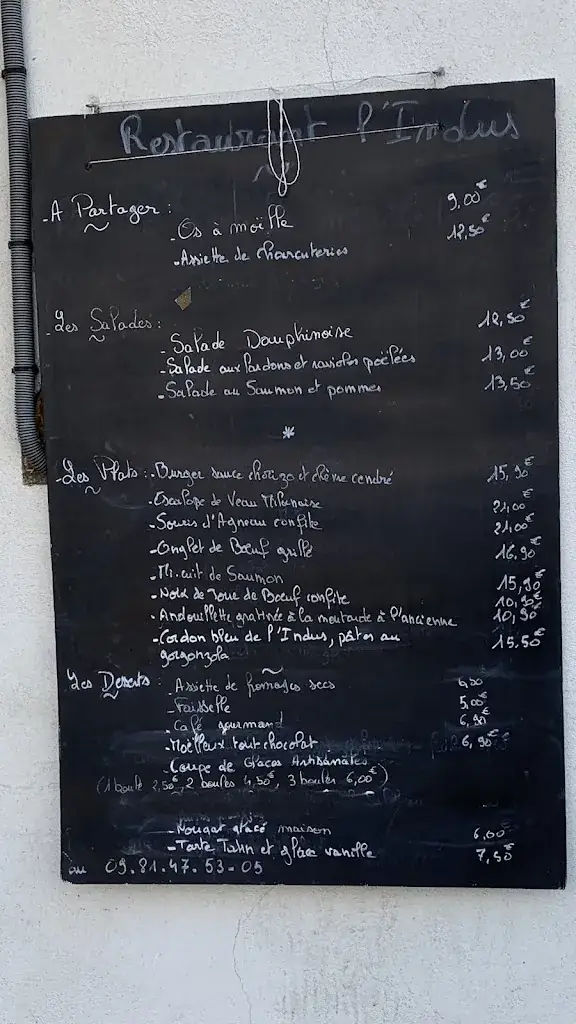 Restaurant l'Indus
- A Partager :
- Os à moëlle 9,00€
- Assiette de charcuteries 12,50€
- Les Salades :
- Salade Dauphinoise 12,50€
- Salade aux lardons et ravioles poëlées 13,00€
- Salade au Saumon et pommes 13,50€
*
- Les Plats : - Burger sauce chorizo et chèvre cendré 15,90€
- Escalope de Veau Milanaise 21,00€
- Souris d'Agneau confite 21,00€
- Onglet de Bœuf grillé 16,90€
- Mi-cuit de Saumon 15,90€
- Noix de Joue de Bœuf confite 10,90€
- Andouillette gratinée à la moutarde à l'ancienne 10,90€
- Cordon bleu de l'Indus, pâtes au 15.50€
gorgonzola
Les Desserts : - Assiette de fromages secs
- Faisselle 5,00€
- Café gourmand 6,90€
- Moëlleux tout chocolat 6,90€
- Coupe de Glaces Artisanales
(1 boule 2,50€, 2 boules 4,50€, 3 boules 6,00€)
- Nougat glacé maison 6,00€
- Tarte Tatin et glace vanille 7,50€
au 09.81.47.53-05